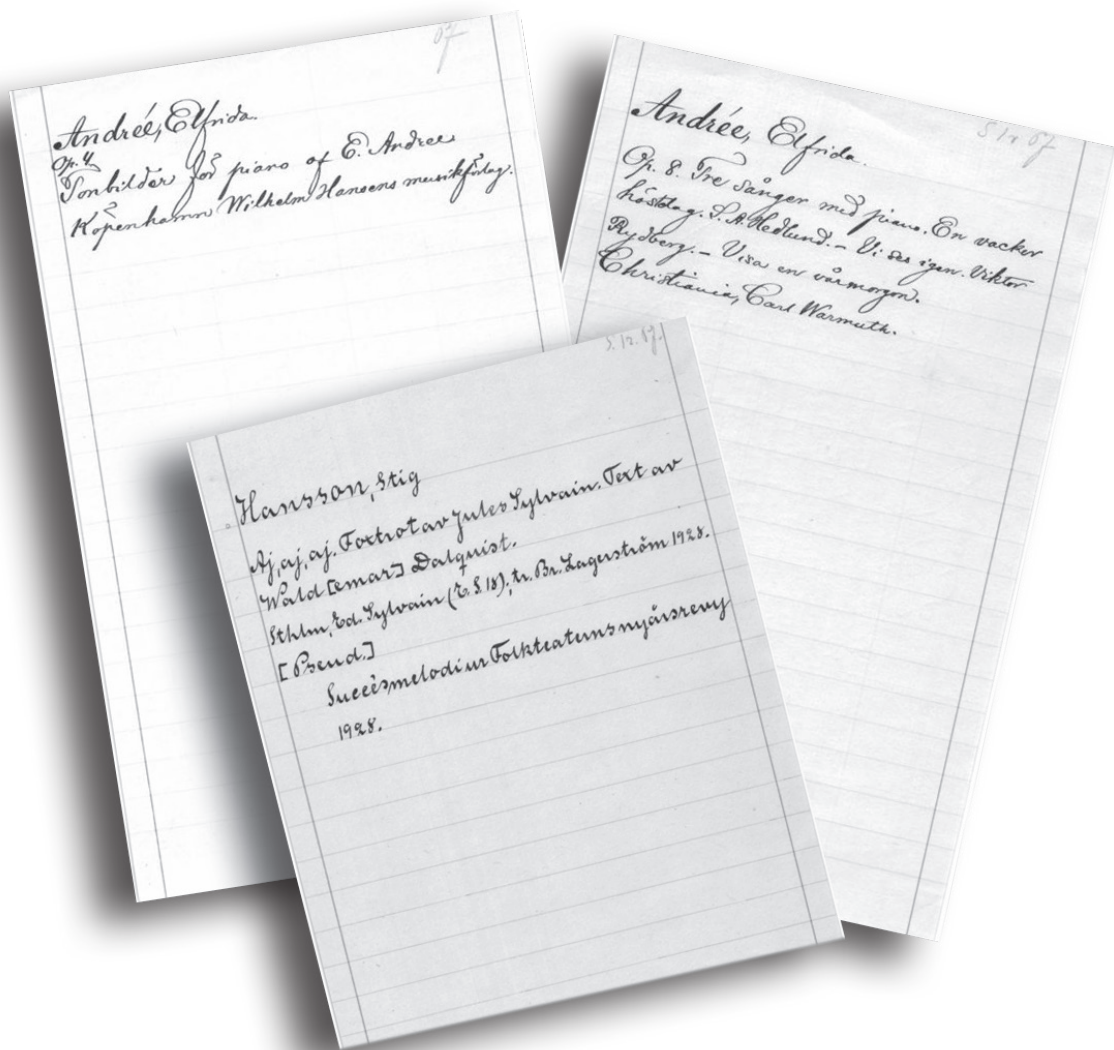 07
Andrée, Elfrida.
Op. 4
Tonbilder för piano af E. Andree
Köpenhamn Wilhelm Hansens musikförlag.
S 12 07
Andrée, Elfrida.
Op. 8. Tre sånger med piano. En vacker
höstdag. S. A. Hedlund. – Vi ses igen. Viktor
Rydberg. – Visa en vårmorgon.
Christiania, Carl Warmuth.
S. 12. 07.
Hansson, Stig
Aj, aj, aj. Foxtrot av Jules Sylvain. Text av
Wald[emar] Dalquist.
Sthlm, Ed. Sylvain (E. S. 18), tr. Br. Lagerström 1928.
[Pseud.]
Succèsmelodi ur Folkteaterns nyårsrevy
1928.